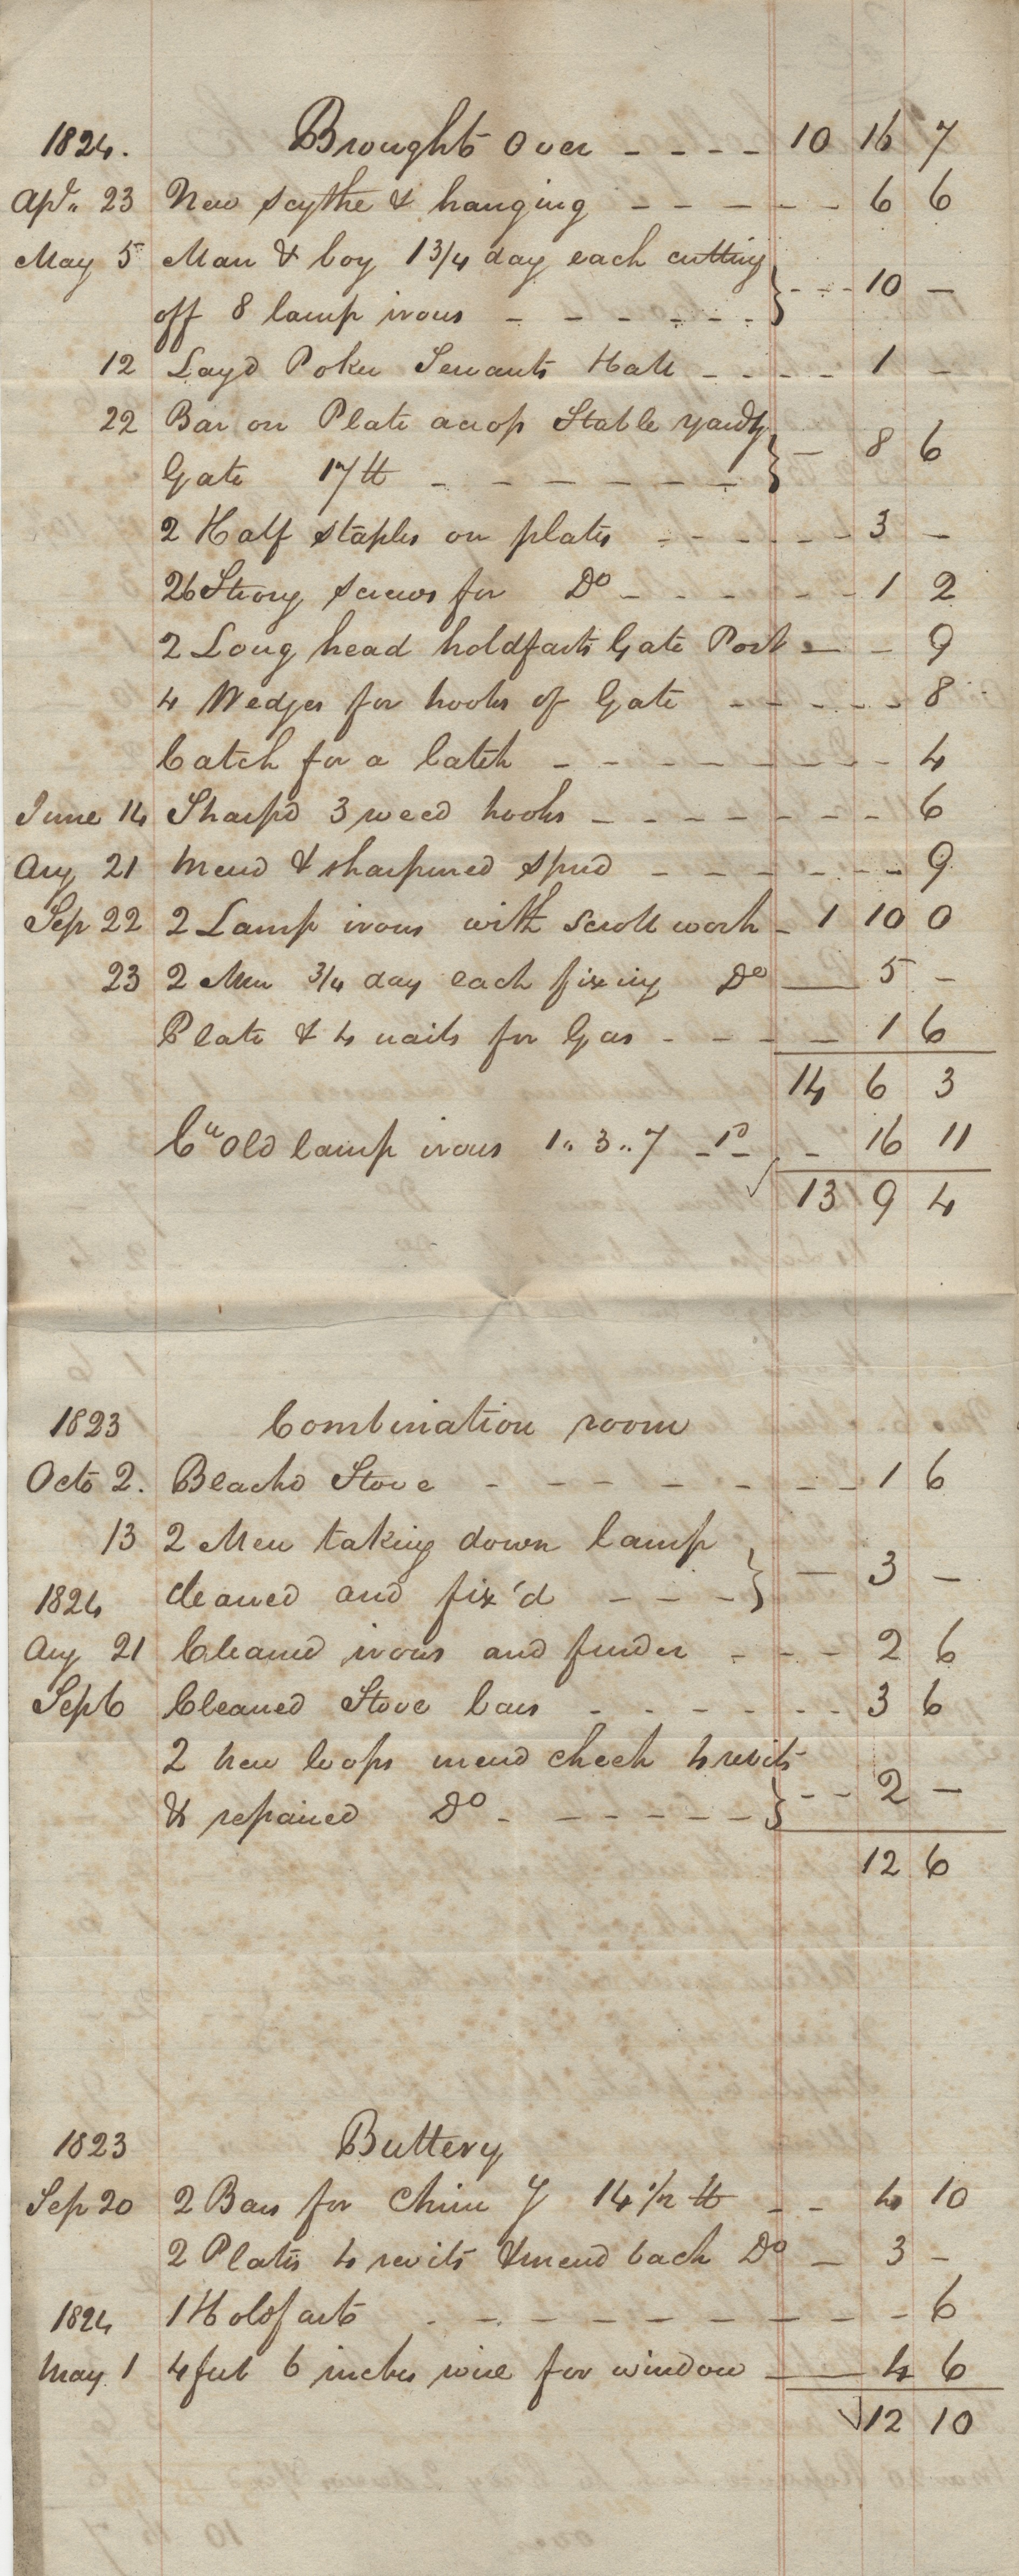 1824. Brought over - - - - 10 16 7
Apl. 23 New scythe & hanging - - - - - 6 6
May 5 Man & boy 1 3/4 day each cutting
off 8 lamp irons - - - - - - } - - - 10 -
12 Layd Poker Servants Hall - - - - 1 -
22 Bar on Plate across Stable yard
Gate 17 lb - - - - - - } - 8 6
2 Half staples on plates - - - - - - 3 -
26 Strong screws for Do - - - - - - 1 2
2 Long head holdfasts Gate Post - - 9
4 Wedges for hooks of Gate - - - - - 8
Catch for a latch - - - - - - - - 4
June 14 Sharpd 3 weed hooks - - - - - - - 6
Aug 21 Mend & sharpened spud - - - - - - 9
Sep 22 2 Lamp irons with scroll work - 1 10 0
23 2 Men 3/4 day each fixing Do — 5 -
Plate & 4 nails for Gas - - - - 1 6
14 6 3
Old lamp irons 1 .. 3 .. 7 - 1d - - 16 11
13 9 4
1823 Combination room
Octo 2. Blackd Stove - - - - - - - - 1 6
13 2 Men taking down lamp
cleaned and fix'd - - - } - 3 -
1824
Aug 21 Cleaned irons and fender - - - 2 6
Sep 6 Cleaned Stove bars - - - - - - 3 6
2 new loops mend cheek 4 revits
& repaired Do - - - - - - } - - 2 -
12 6
1823 Buttery
Sep 20 2 Bars for Chimy 14 1/2 lb - - 4 10
2 Plates 4 revits & mend back Do - 3 -
1824 1 Holdfast - - - - - - - - - 6
May 1 4 feet 6 inches wire for window — 4 6
12 10